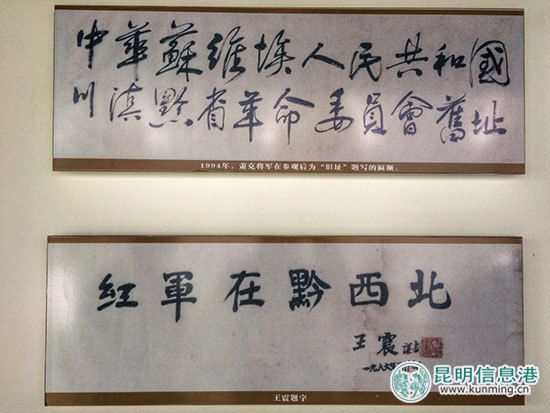 中華蘇維埃人民共和國
川滇黔省革命委員會舊址
1994年，萧克将军在参观后为“旧址”题写的匾额。
紅軍在黔西北
王震
王震题字
昆明信息港
www.kunming.cn